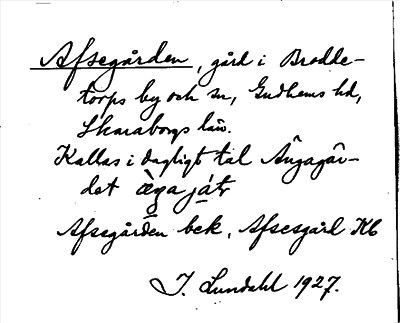 Afsegården, gård i Brodde-
torps by och sn, Gudhems hd,
Skaraborgs län.
Kallas i dagligt tal Ängagår-
det
Afsegården bek. Afsesgård Kb
J. Lundahl 1927.